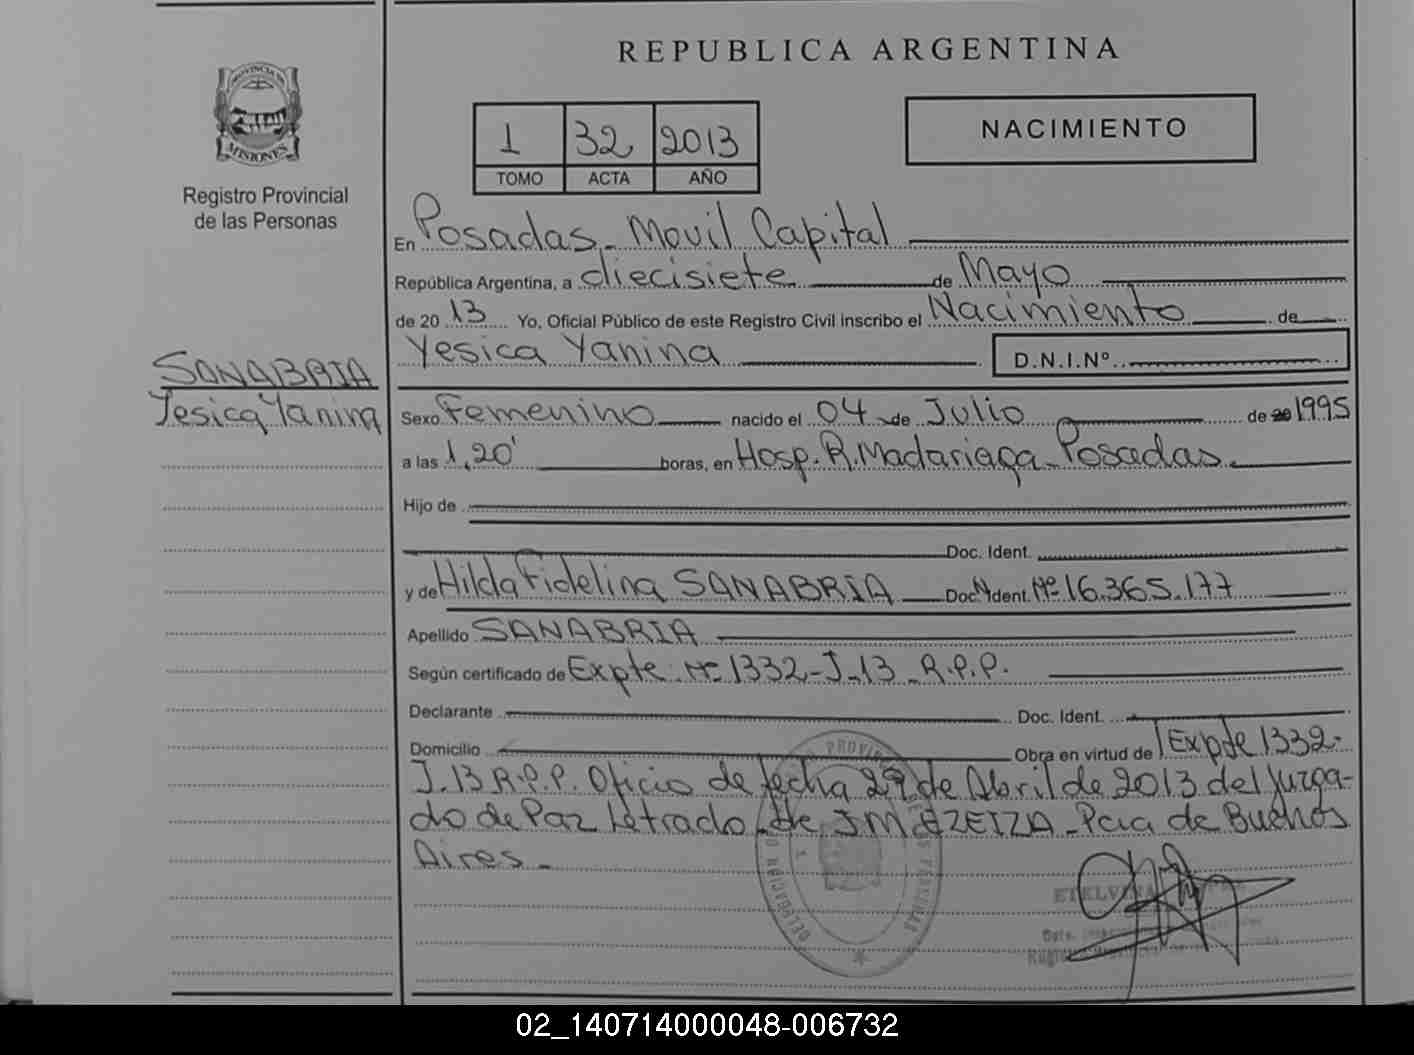 REPUBLICA ARGENTINA
PROVINCIA DE
MISIONES
Registro Provincial
de las Personas
1 32 2013
TOMO ACTA AÑO
NACIMIENTO
En Posadas - Movil Capital
República Argentina, a diecisiete de Mayo
de 20 13 Yo, Oficial Público de este Registro Civil inscribo el Nacimiento de
Yesica Yanina D.N.I.Nº
SANABRIA
Yesica Yanina
Sexo Femenino nacido el 04 de Julio de 20 1995
a las 1,20' horas, en Hosp. R. Madariaga - Posadas.
Hijo de
Doc. Ident.
y de Hilda Fidelina SANABRIA Doc. Ident. Nº 16.365.177
Apellido SANABRIA
Según certificado de Expte. Nº 1332-J-13 - R.P.P.
Declarante Doc. Ident.
Domicilio Obra en virtud de Expte 1332-
J.13 R.P.P. Oficio de fecha 29 de Abril de 2013 del Juzga-
do de Paz Letrado de EZEIZA - Pcia de Buenos
Aires -
ETELVINA
02_140714000048-006732